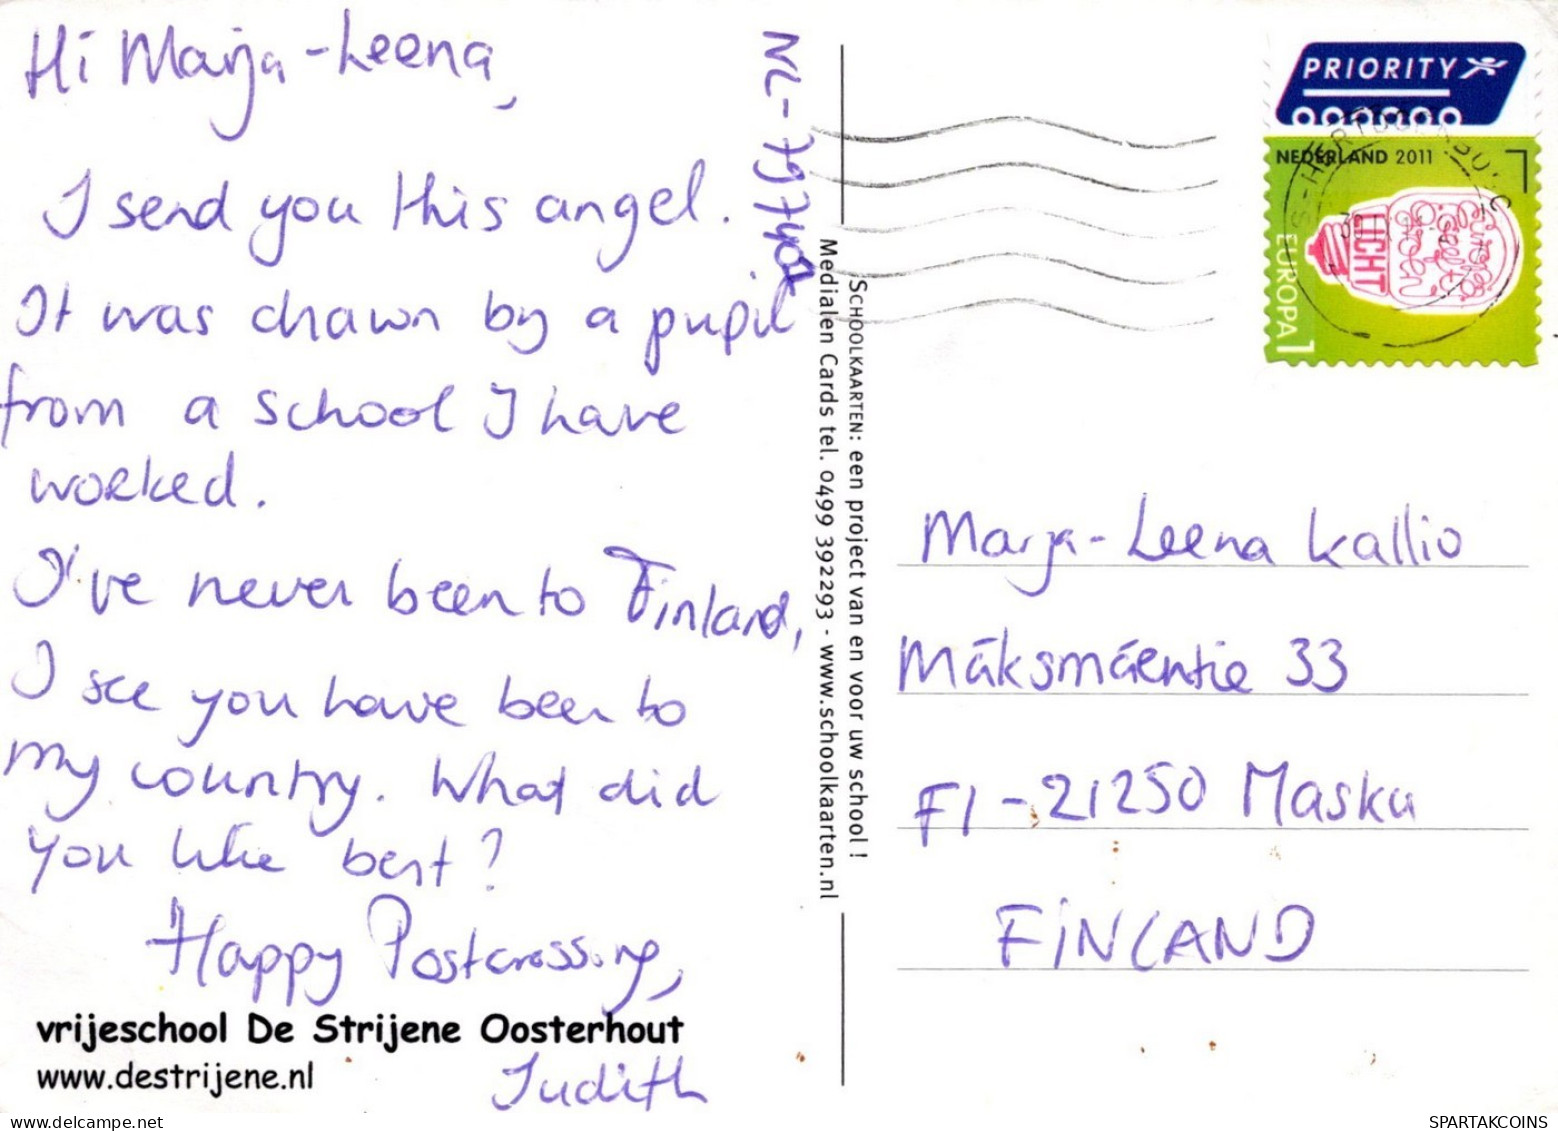 Hi Marja-Leena,
I send you this angel.
It was drawn by a pupil
from a school I have
worked.
I've never been to Finland,
I see you have been to
my country. What did
you like best?
Happy Postcrossing,
Judith
vrijeschool De Strijene Oosterhout
www.destrijene.nl
SCHOOLKAARTEN: een project van en voor uw school!
Medialen Cards tel. 0499 392293 - www.schoolkaarten.nl
PRIORITY
NEDERLAND 2011
EUROPA 1
LICHT
Europa geeft groen
'S-HERTOGENBOSCH
Marja-Leena Kallio
Mäksmäentie 33
FI-21250 Masku
FINLAND
SPARTAKCOINS